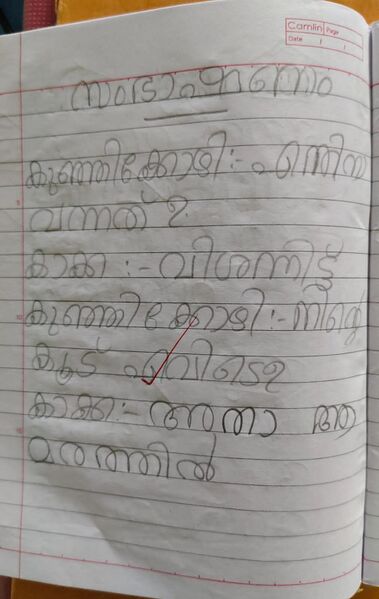 Camlin Page
Date
സംഭാഷണം
കുഞ്ഞിക്കോഴി :- എന്തിന
വന്നത് ?
കാക്ക :- വിശന്നിട്ട്
കുഞ്ഞിക്കോഴി :- നിന്റെ
കൂട് എവിടെ ?
കാക്ക :- അതാ ആ
മരത്തിൽ